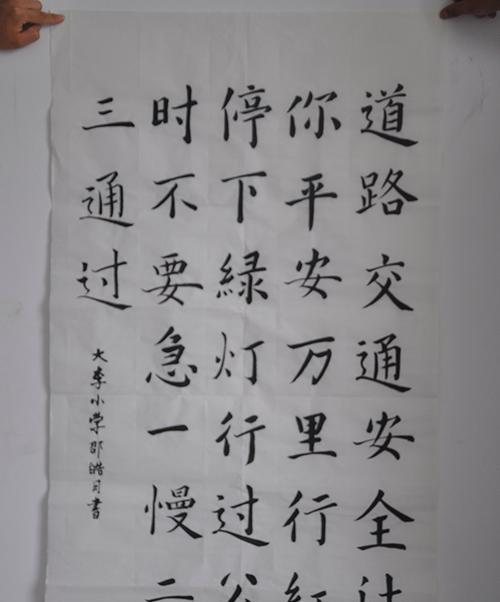 道路交通安全让
你平安万里行红
停下緑灯行过公
时不要急一慢二
三通过
大李小学邵皓月書